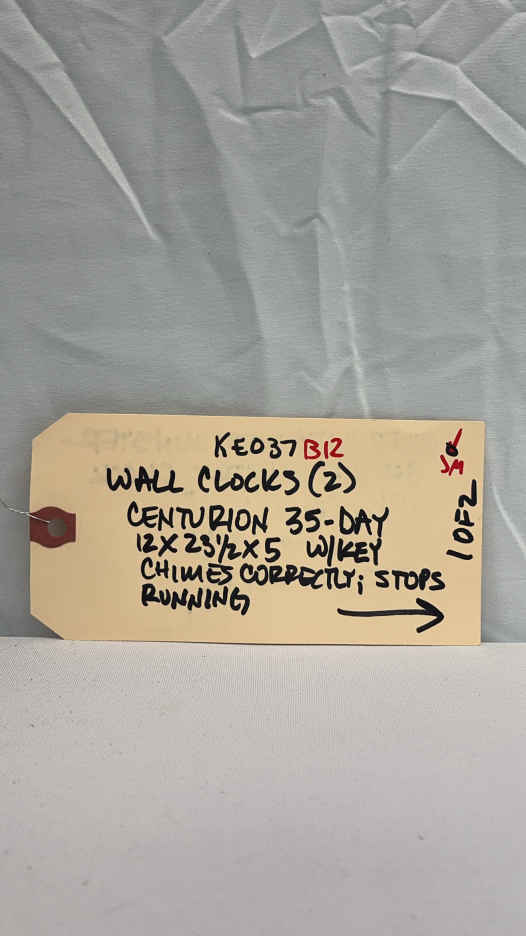 KE037 B12
WALL CLOCKS (2)
CENTURION 35-DAY
12 X 23 1/2 X 5 W/KEY
CHIMES CORRECTLY; STOPS
RUNNING
SM
1 OF 2